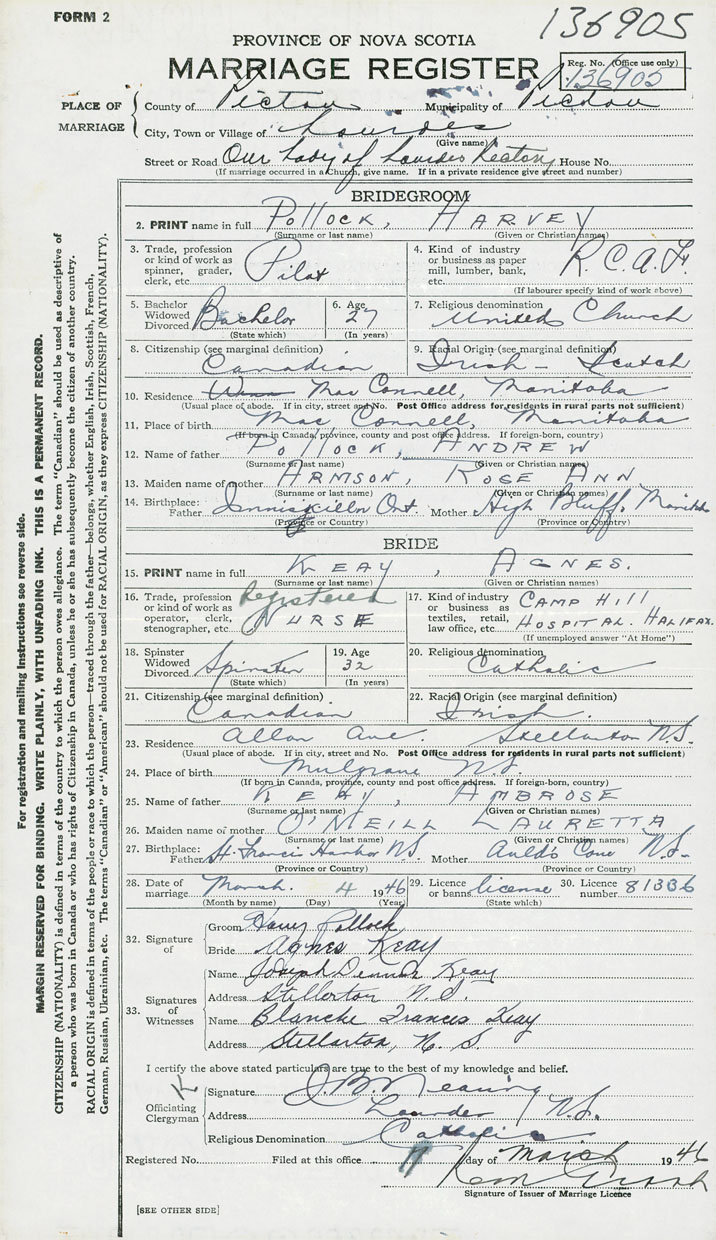 FORM 2
136905
PROVINCE OF NOVA SCOTIA
MARRIAGE REGISTER
Reg. No. (Office use only)
136905
PLACE OF MARRIAGE
County of Pictou Municipality of Pictou
City, Town or Village of Lourdes
(Give name)
Street or Road Our Lady of Lourdes Rectory House No.
(If marriage occurred in a Church, give name. If in a private residence give street and number)
BRIDEGROOM
2. PRINT name in full POLLOCK, HARVEY
(Surname or last name) (Given or Christian names)
3. Trade, profession or kind of work as spinner, grader, clerk, etc. Pilot
4. Kind of industry or business as paper mill, lumber, bank, etc. R.C.A.F.
(If labourer specify kind of work above)
5. Bachelor Widowed Divorced Bachelor
(State which)
6. Age 27
(In years)
7. Religious denomination United Church
8. Citizenship (see marginal definition) Canadian
9. Racial Origin (see marginal definition) Irish - Scotch
10. Residence Mac Connell, Manitoba
(Usual place of abode. If in city, street and No. Post Office address for residents in rural parts not sufficient)
11. Place of birth Mac Connell, Manitoba
(If born in Canada, province, county and post office address. If foreign-born, country)
12. Name of father POLLOCK, ANDREW
(Surname or last name) (Given or Christian names)
13. Maiden name of mother ARMSON, ROSE ANN
(Surname or last name) (Given or Christian names)
14. Birthplace: Father Inniskillen Ont. Mother High Bluff, Manitoba
(Province or Country) (Province or Country)
BRIDE
15. PRINT name in full KEAY, AGNES.
(Surname or last name) (Given or Christian names)
16. Trade, profession or kind of work as operator, clerk, stenographer, etc. Registered NURSE
17. Kind of industry or business as textiles, retail, law office, etc. CAMP HILL HOSPITAL. HALIFAX.
(If unemployed answer "At Home")
18. Spinster Widowed Divorced Spinster
(State which)
19. Age 32
(In years)
20. Religious denomination Catholic
21. Citizenship (see marginal definition) Canadian
22. Racial Origin (see marginal definition) Irish.
23. Residence Allan Ave. Stellarton N.S.
(Usual place of abode. If in city, street and No. Post Office address for residents in rural parts not sufficient)
24. Place of birth Mulgrave N.S.
(If born in Canada, province, county and post office address. If foreign-born, country)
25. Name of father KEAY, AMBROSE
(Surname or last name) (Given or Christian names)
26. Maiden name of mother O'NEILL LAURETTA
(Surname or last name) (Given or Christian names)
27. Birthplace: Father St. Francis Harbor N.S. Mother Auld's Cove N.S.
(Province or Country) (Province or Country)
28. Date of marriage March. 4 1946
(Month by name) (Day) (Year)
29. Licence or banns license
(State which)
30. Licence number 81336
32. Signature of
Groom Harvey Pollock
Bride Agnes Keay
33. Signatures of Witnesses
Name Joseph Dennis Keay
Address Stellarton N.S.
Name Blanche Frances Keay
Address Stellarton, N.S.
I certify the above stated particulars are true to the best of my knowledge and belief.
Officiating Clergyman
Signature J.B. Nearing
Address Lourdes N.S.
Religious Denomination Catholic
Registered No. Filed at this office day of March 1946
Signature of Issuer of Marriage Licence
[SEE OTHER SIDE]
For registration and mailing instructions see reverse side.
MARGIN RESERVED FOR BINDING. WRITE PLAINLY, WITH UNFADING INK. THIS IS A PERMANENT RECORD.
CITIZENSHIP (NATIONALITY) is defined in terms of the country to which the person owes allegiance. The term "Canadian" should be used as descriptive of
a person who was born in Canada or who has rights of Citizenship in Canada, unless he or she has subsequently become the citizen of another country.
RACIAL ORIGIN is defined in terms of the people or race to which the person—traced through the father—belongs, whether English, Irish, Scottish, French,
German, Russian, Ukrainian, etc. The terms "Canadian" or "American" should not be used for RACIAL ORIGIN, as they express CITIZENSHIP (NATIONALITY).